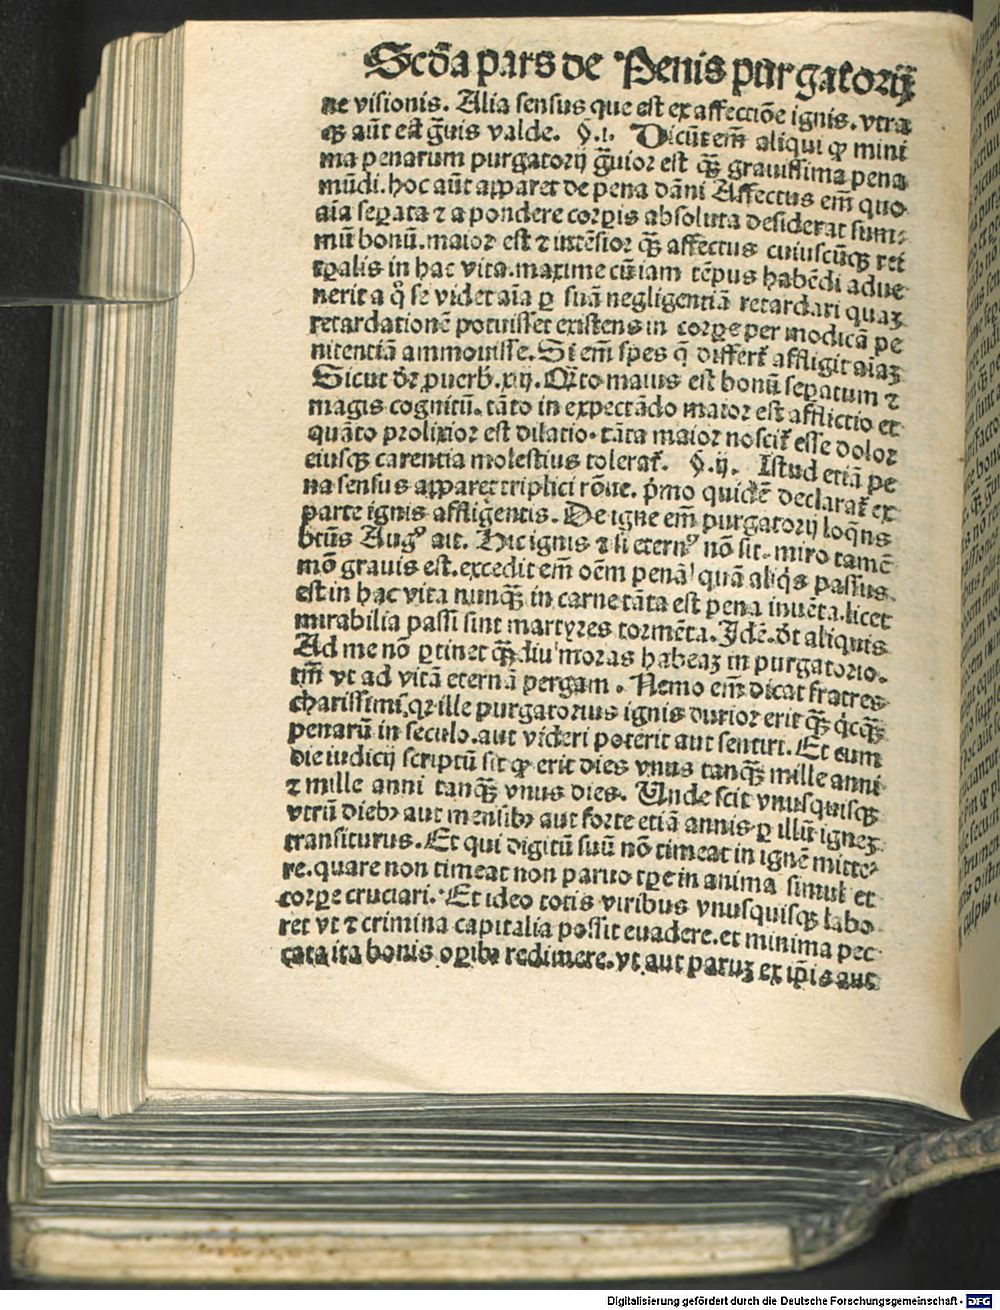 Scd̄a pars de Penis purgatorij
ne visionis. Alia sensus que est ex affectiōe ignis. vtra
qꝫ aūt est g̅uis valde. §.i. Dicūt em̄ aliqui qꝙ mini
ma penarum purgatorij g̅uior est qͣꝫ grauissima pena
mūdi. hoc aūt apparet de pena dāni Affectus em̄ quo
aīa seꝑata ⁊ a pondere corꝑis absoluta desiderat sum-
mū bonū. maior est ⁊ intēsior qͣꝫ affectus cuiuscūqꝫ rei
tꝑalis in hac vita. maxime cū iam tēpus habēdi adue
nerit a qͦ se videt aīa ꝑ suā negligentiā retardari quaꝫ
retardationē potuisset existens in corꝑe per modicā pe
nitentiā ammouisse. Si em̄ spes q̄ differt᷑ affligit aīaꝫ
Sicut dr̄ ꝓuerb̄. xiij. Qn̄to maius est bonū seꝑatum ⁊
magis cognitū. tāto in expectādo maior est afflictio et
quāto prolixior est dilatio. tāta maior noscit᷑ esse dolor
eiusqꝫ carentia molestius tolerat᷑. §.ij. Istud etiā pe
na sensus apparet triplici rōne. p̄mo quidē declarat᷑ ex
parte ignis affligentis. De igne em̄ purgatorij loqn̄s
btūs Augꝰ ait. Hic ignis ⁊ si eternꝰ nō sit. miro tamē
mō grauis est. excedit em̄ oēm penā quā aliqͥs passus
est in hac vita nunqͣꝫ in carne tāta est pena inuēta. licet
mirabilia passi sint martyres tormēta. Idē. dt̄ aliquis
Ad me nō ꝑtinet qͣꝫdiu moras habeaꝫ in purgatorio.
tm̄ vt ad vitā eternā pergam. Nemo em̄ dicat fratres
charissimi, qꝛ ille purgatorius ignis durior erit qͣꝫ qͥcqͣꝫ
penarū in seculo. aut videri poterit aut sentiri. Et cum
die iudicij scriptū sit ꝙ erit dies vnus tanqͣꝫ mille anni
⁊ mille anni tanqͣꝫ vnus dies. Unde scit vnusquisqꝫ
vtrū diebꝰ aut mensibꝰ aut forte etiā annis ꝑ illū igneꝫ
transiturus. Et qui digitū suū nō timeat in ignē mitte-
re. quare non timeat non paruo tꝑe in anima simul et
corꝑe cruciari. Et ideo totis viribus vnusquisqꝫ labo
ret vt ⁊ crimina capitalia possit euadere. et minima pec
cata ita bonis oꝑibꝰ redimere. vt aut paruꝫ ex ip̄is aut
Digitalisierung gefördert durch die Deutsche Forschungsgemeinschaft - DFG